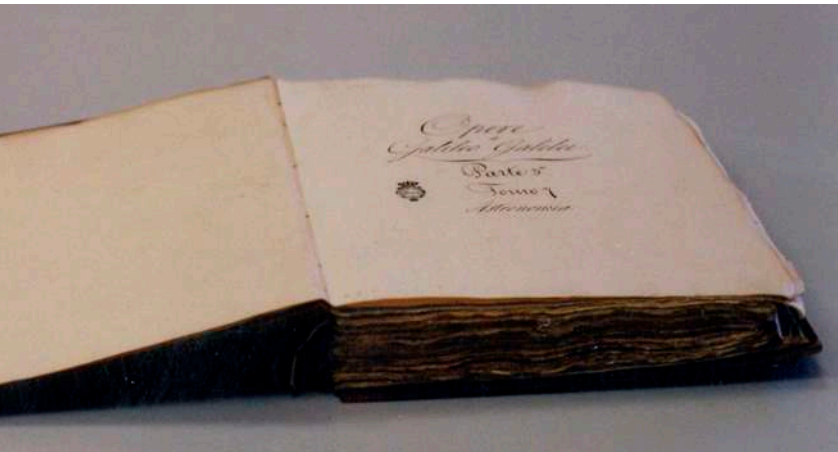 Opere
di
Galileo Galilei
Parte 3ª
Tomo 7
Astronomia